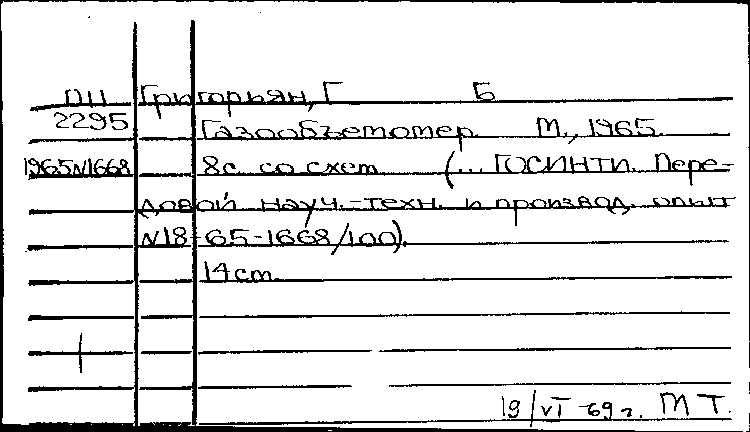 ПН Григорьян, Г Б
2295 Газообъемомер М., 1965.
1965N1668 8с. со схем (... ГОСИНТИ. Пере-
довой науч.-техн. и производ. опыт
N18-65-1668/100).
14см.
19/VI-69г. М Т.